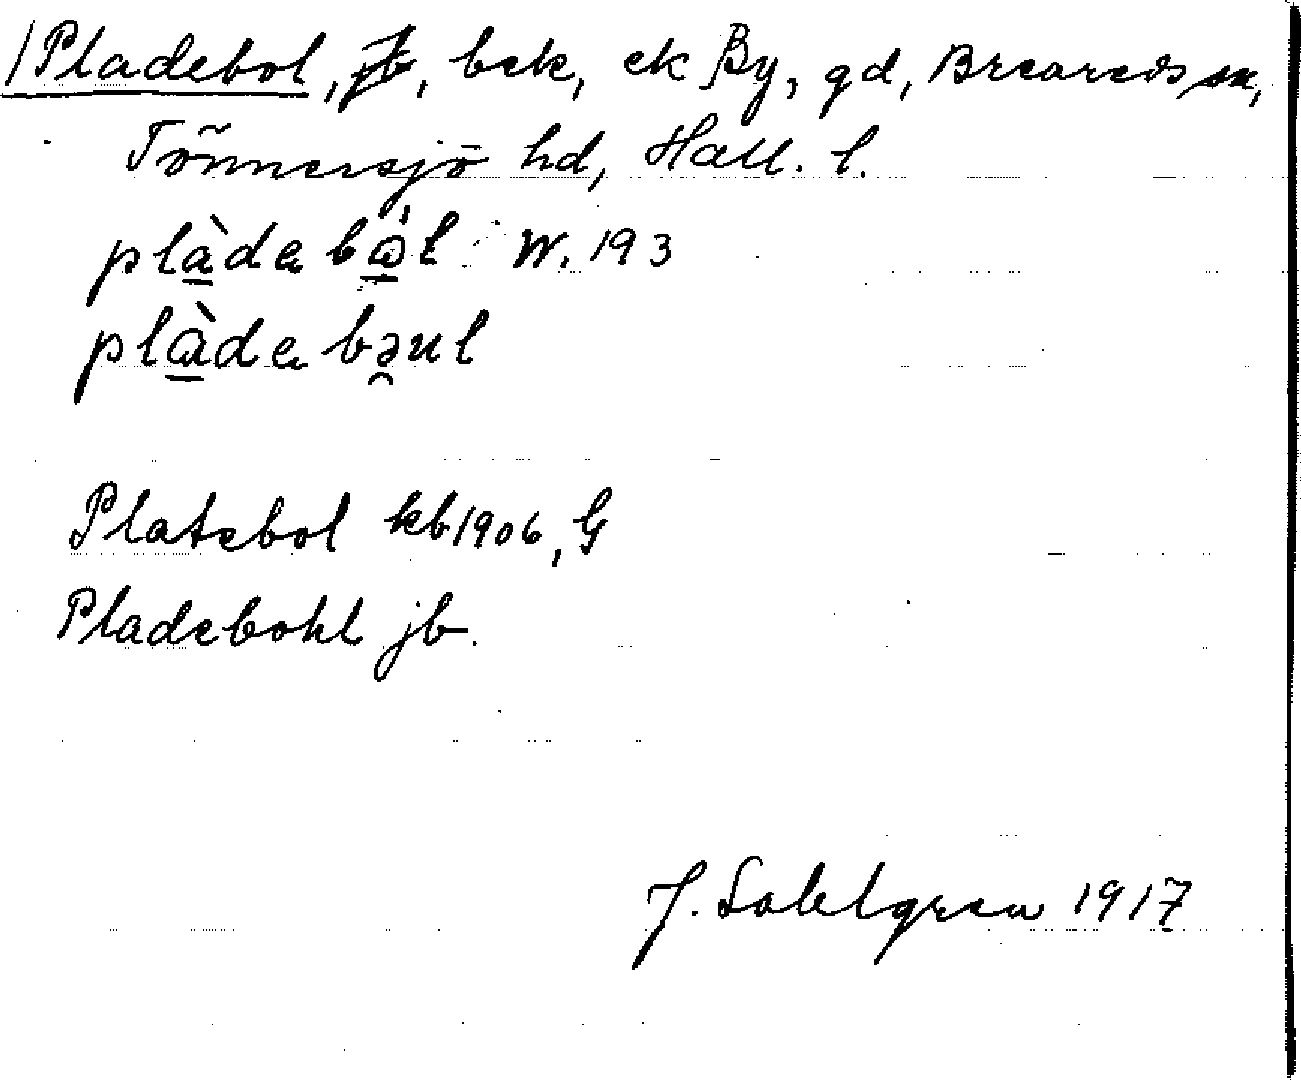 /Pladebol, jb, bek, ek By, gd, Breareds sn,
Tönnersjö hd, Hall. l.
plàdebål W. 193
plàdebəul
Platebol kb 1906, G
Pladebohl jb.
J. Sahlgren 1917